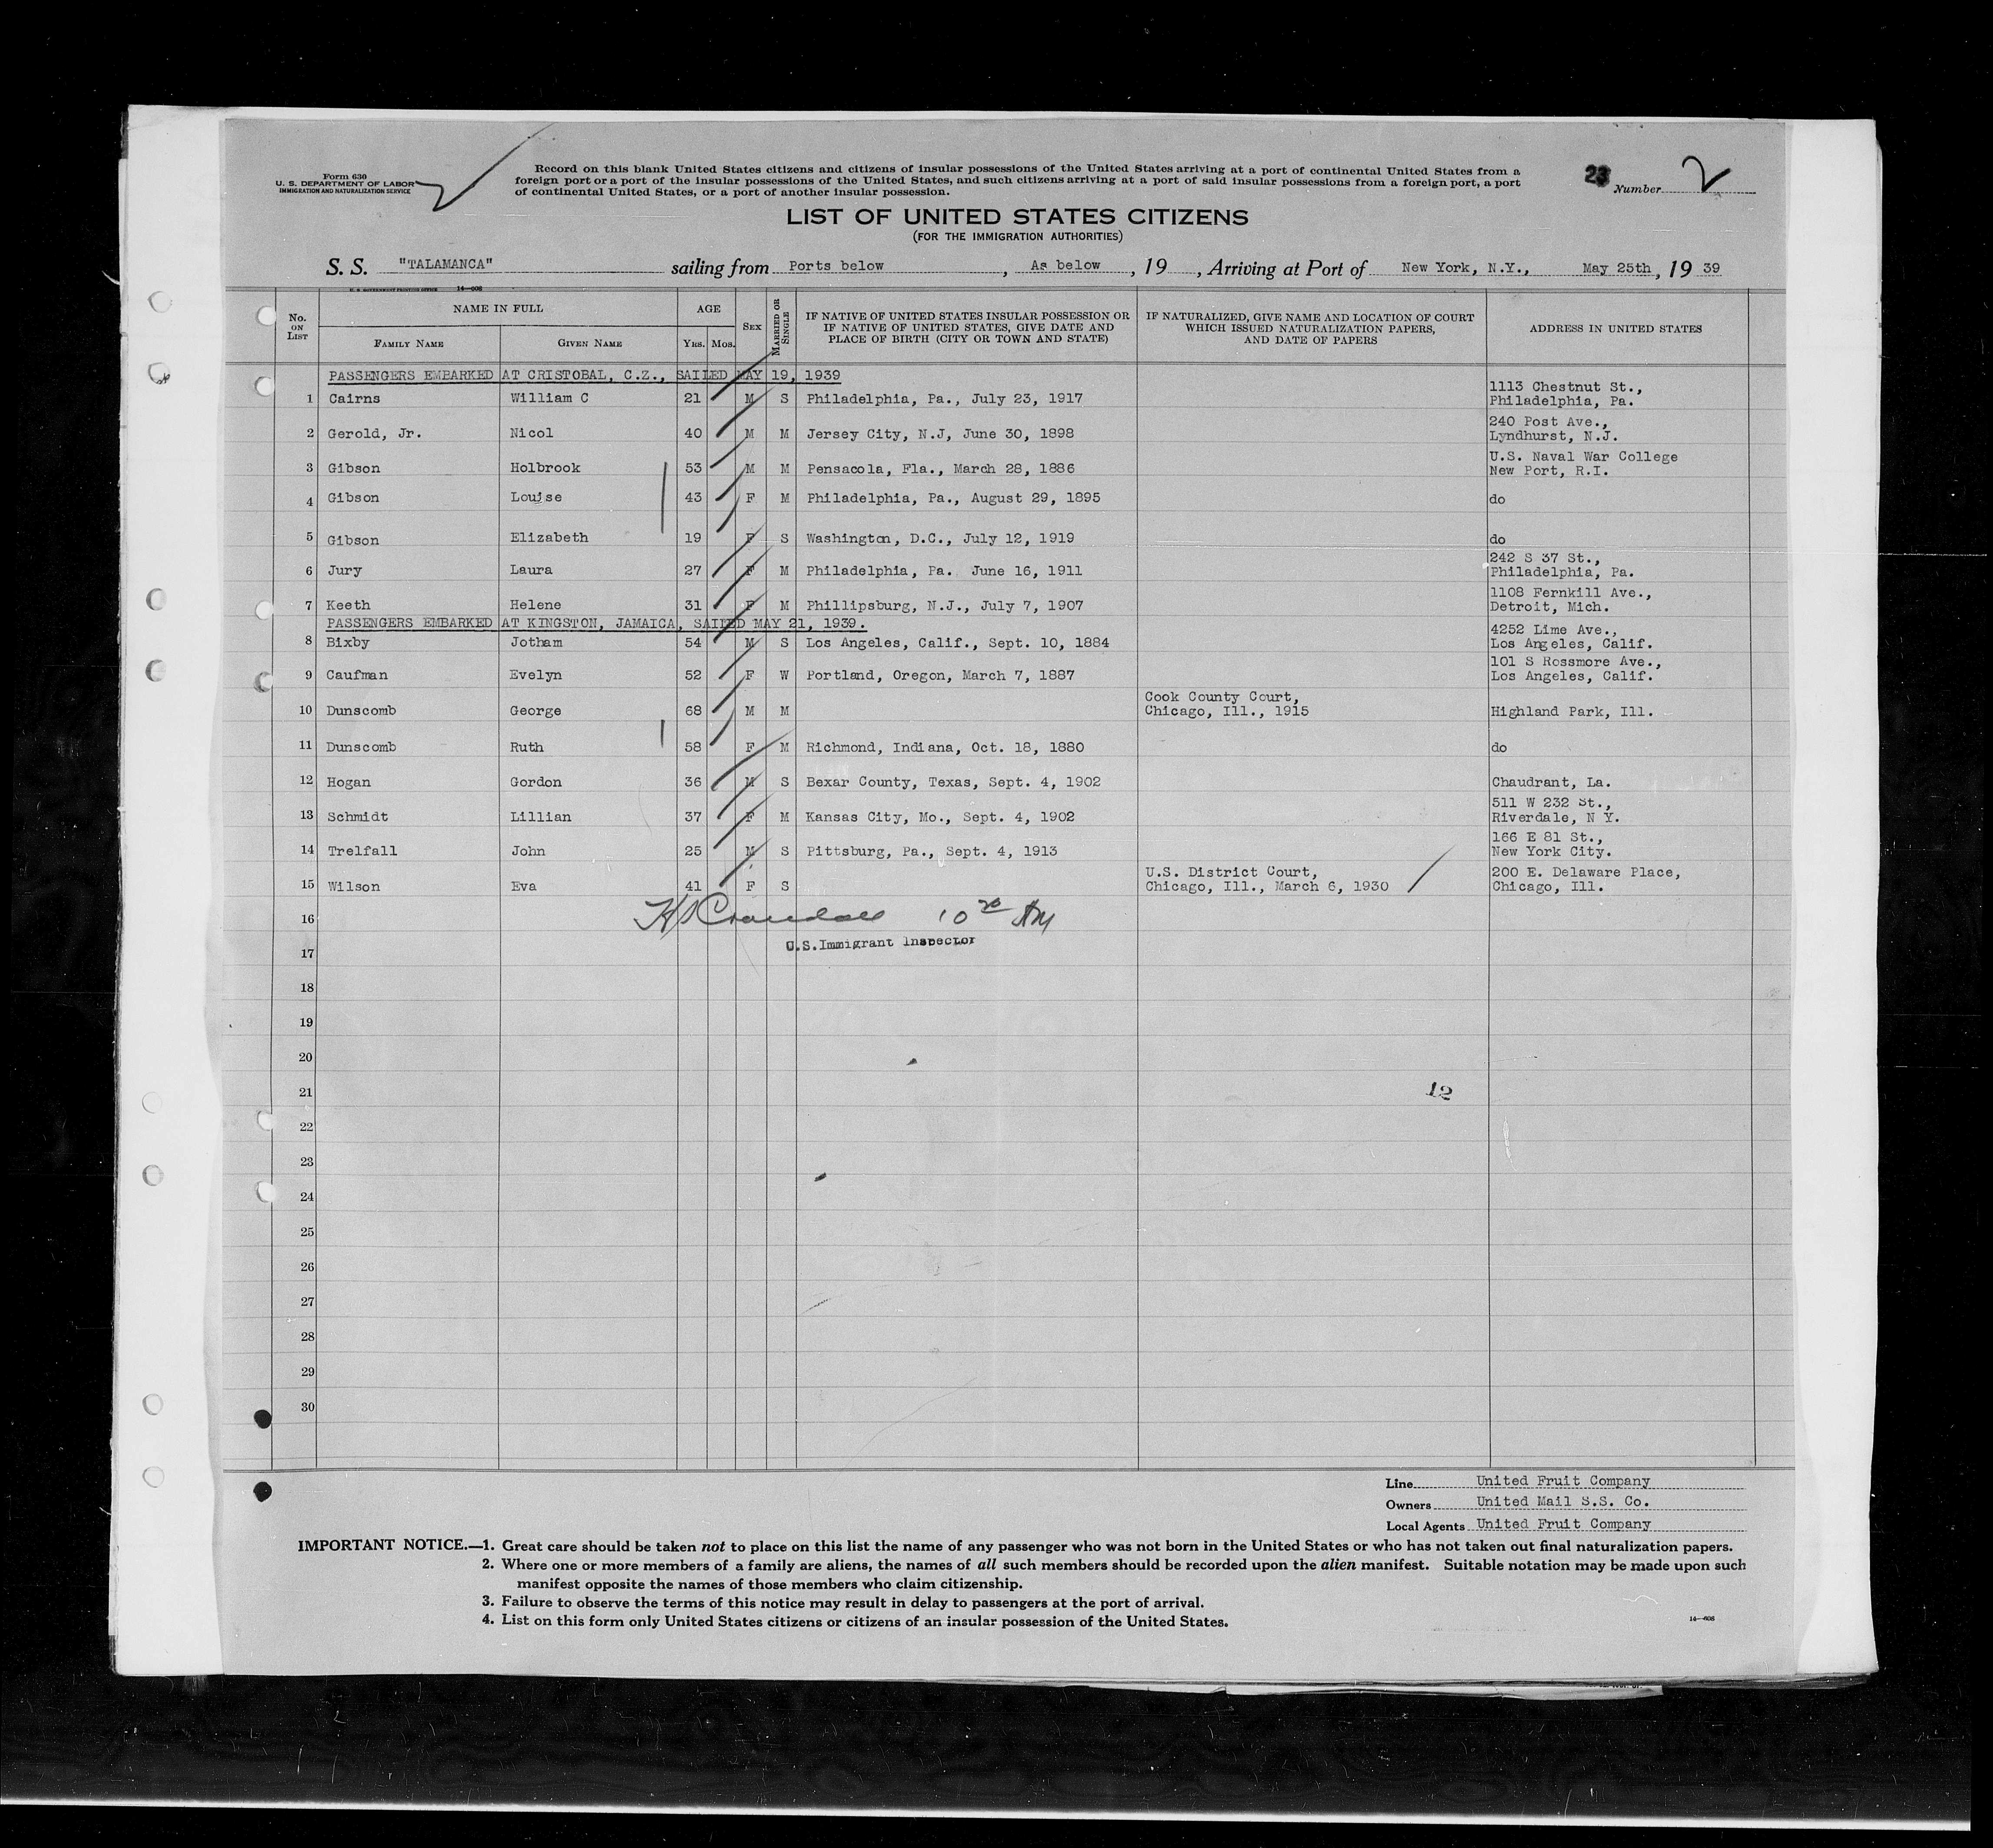 Form 630
U. S. DEPARTMENT OF LABOR
IMMIGRATION AND NATURALIZATION SERVICE
Record on this blank United States citizens and citizens of insular possessions of the United States arriving at a port of continental United States from a
foreign port or a port of the insular possessions of the United States, and such citizens arriving at a port of said insular possessions from a foreign port, a port
of continental United States, or a port of another insular possession.
23 Number 2
LIST OF UNITED STATES CITIZENS
(FOR THE IMMIGRATION AUTHORITIES)
S. S. "TALAMANCA" sailing from Ports below, As below, 19 , Arriving at Port of New York, N.Y., May 25th, 19 39
U. S. GOVERNMENT PRINTING OFFICE 14—608
No. ON LIST NAME IN FULL AGE SEX MARRIED OR SINGLE IF NATIVE OF UNITED STATES INSULAR POSSESSION OR IF NATIVE OF UNITED STATES, GIVE DATE AND PLACE OF BIRTH (CITY OR TOWN AND STATE) IF NATURALIZED, GIVE NAME AND LOCATION OF COURT WHICH ISSUED NATURALIZATION PAPERS, AND DATE OF PAPERS ADDRESS IN UNITED STATES
FAMILY NAME GIVEN NAME YRS. MOS.
PASSENGERS EMBARKED AT CRISTOBAL, C.Z., SAILED MAY 19, 1939
1 Cairns William C 21 M S Philadelphia, Pa., July 23, 1917 1113 Chestnut St., Philadelphia, Pa.
2 Gerold, Jr. Nicol 40 M M Jersey City, N.J, June 30, 1898 240 Post Ave., Lyndhurst, N.J.
3 Gibson Holbrook 53 M M Pensacola, Fla., March 28, 1886 U.S. Naval War College New Port, R.I.
4 Gibson Louise 43 F M Philadelphia, Pa., August 29, 1895 do
5 Gibson Elizabeth 19 F S Washington, D.C., July 12, 1919 do
6 Jury Laura 27 F M Philadelphia, Pa. June 16, 1911 242 S 37 St., Philadelphia, Pa.
7 Keeth Helene 31 F M Phillipsburg, N.J., July 7, 1907 1108 Fernkill Ave., Detroit, Mich.
PASSENGERS EMBARKED AT KINGSTON, JAMAICA, SAILED MAY 21, 1939.
8 Bixby Jotham 54 M S Los Angeles, Calif., Sept. 10, 1884 4252 Lime Ave., Los Angeles, Calif.
9 Caufman Evelyn 52 F W Portland, Oregon, March 7, 1887 101 S Rossmore Ave., Los Angeles, Calif.
10 Dunscomb George 68 M M Cook County Court, Chicago, Ill., 1915 Highland Park, Ill.
11 Dunscomb Ruth 58 F M Richmond, Indiana, Oct. 18, 1880 do
12 Hogan Gordon 36 M S Bexar County, Texas, Sept. 4, 1902 Chaudrant, La.
13 Schmidt Lillian 37 F M Kansas City, Mo., Sept. 4, 1902 511 W 232 St., Riverdale, N Y.
14 Trelfall John 25 M S Pittsburg, Pa., Sept. 4, 1913 166 E 81 St., New York City.
15 Wilson Eva 41 F S U.S. District Court, Chicago, Ill., March 6, 1930 200 E. Delaware Place, Chicago, Ill.
16 Crandall 10 AM
U.S. Immigrant Inspector
17
18
19
20
21
12
22
23
24
25
26
27
28
29
30
Line United Fruit Company
Owners United Mail S.S. Co.
Local Agents United Fruit Company
IMPORTANT NOTICE.—1. Great care should be taken not to place on this list the name of any passenger who was not born in the United States or who has not taken out final naturalization papers.
2. Where one or more members of a family are aliens, the names of all such members should be recorded upon the alien manifest. Suitable notation may be made upon such
manifest opposite the names of those members who claim citizenship.
3. Failure to observe the terms of this notice may result in delay to passengers at the port of arrival.
4. List on this form only United States citizens or citizens of an insular possession of the United States.
14—608